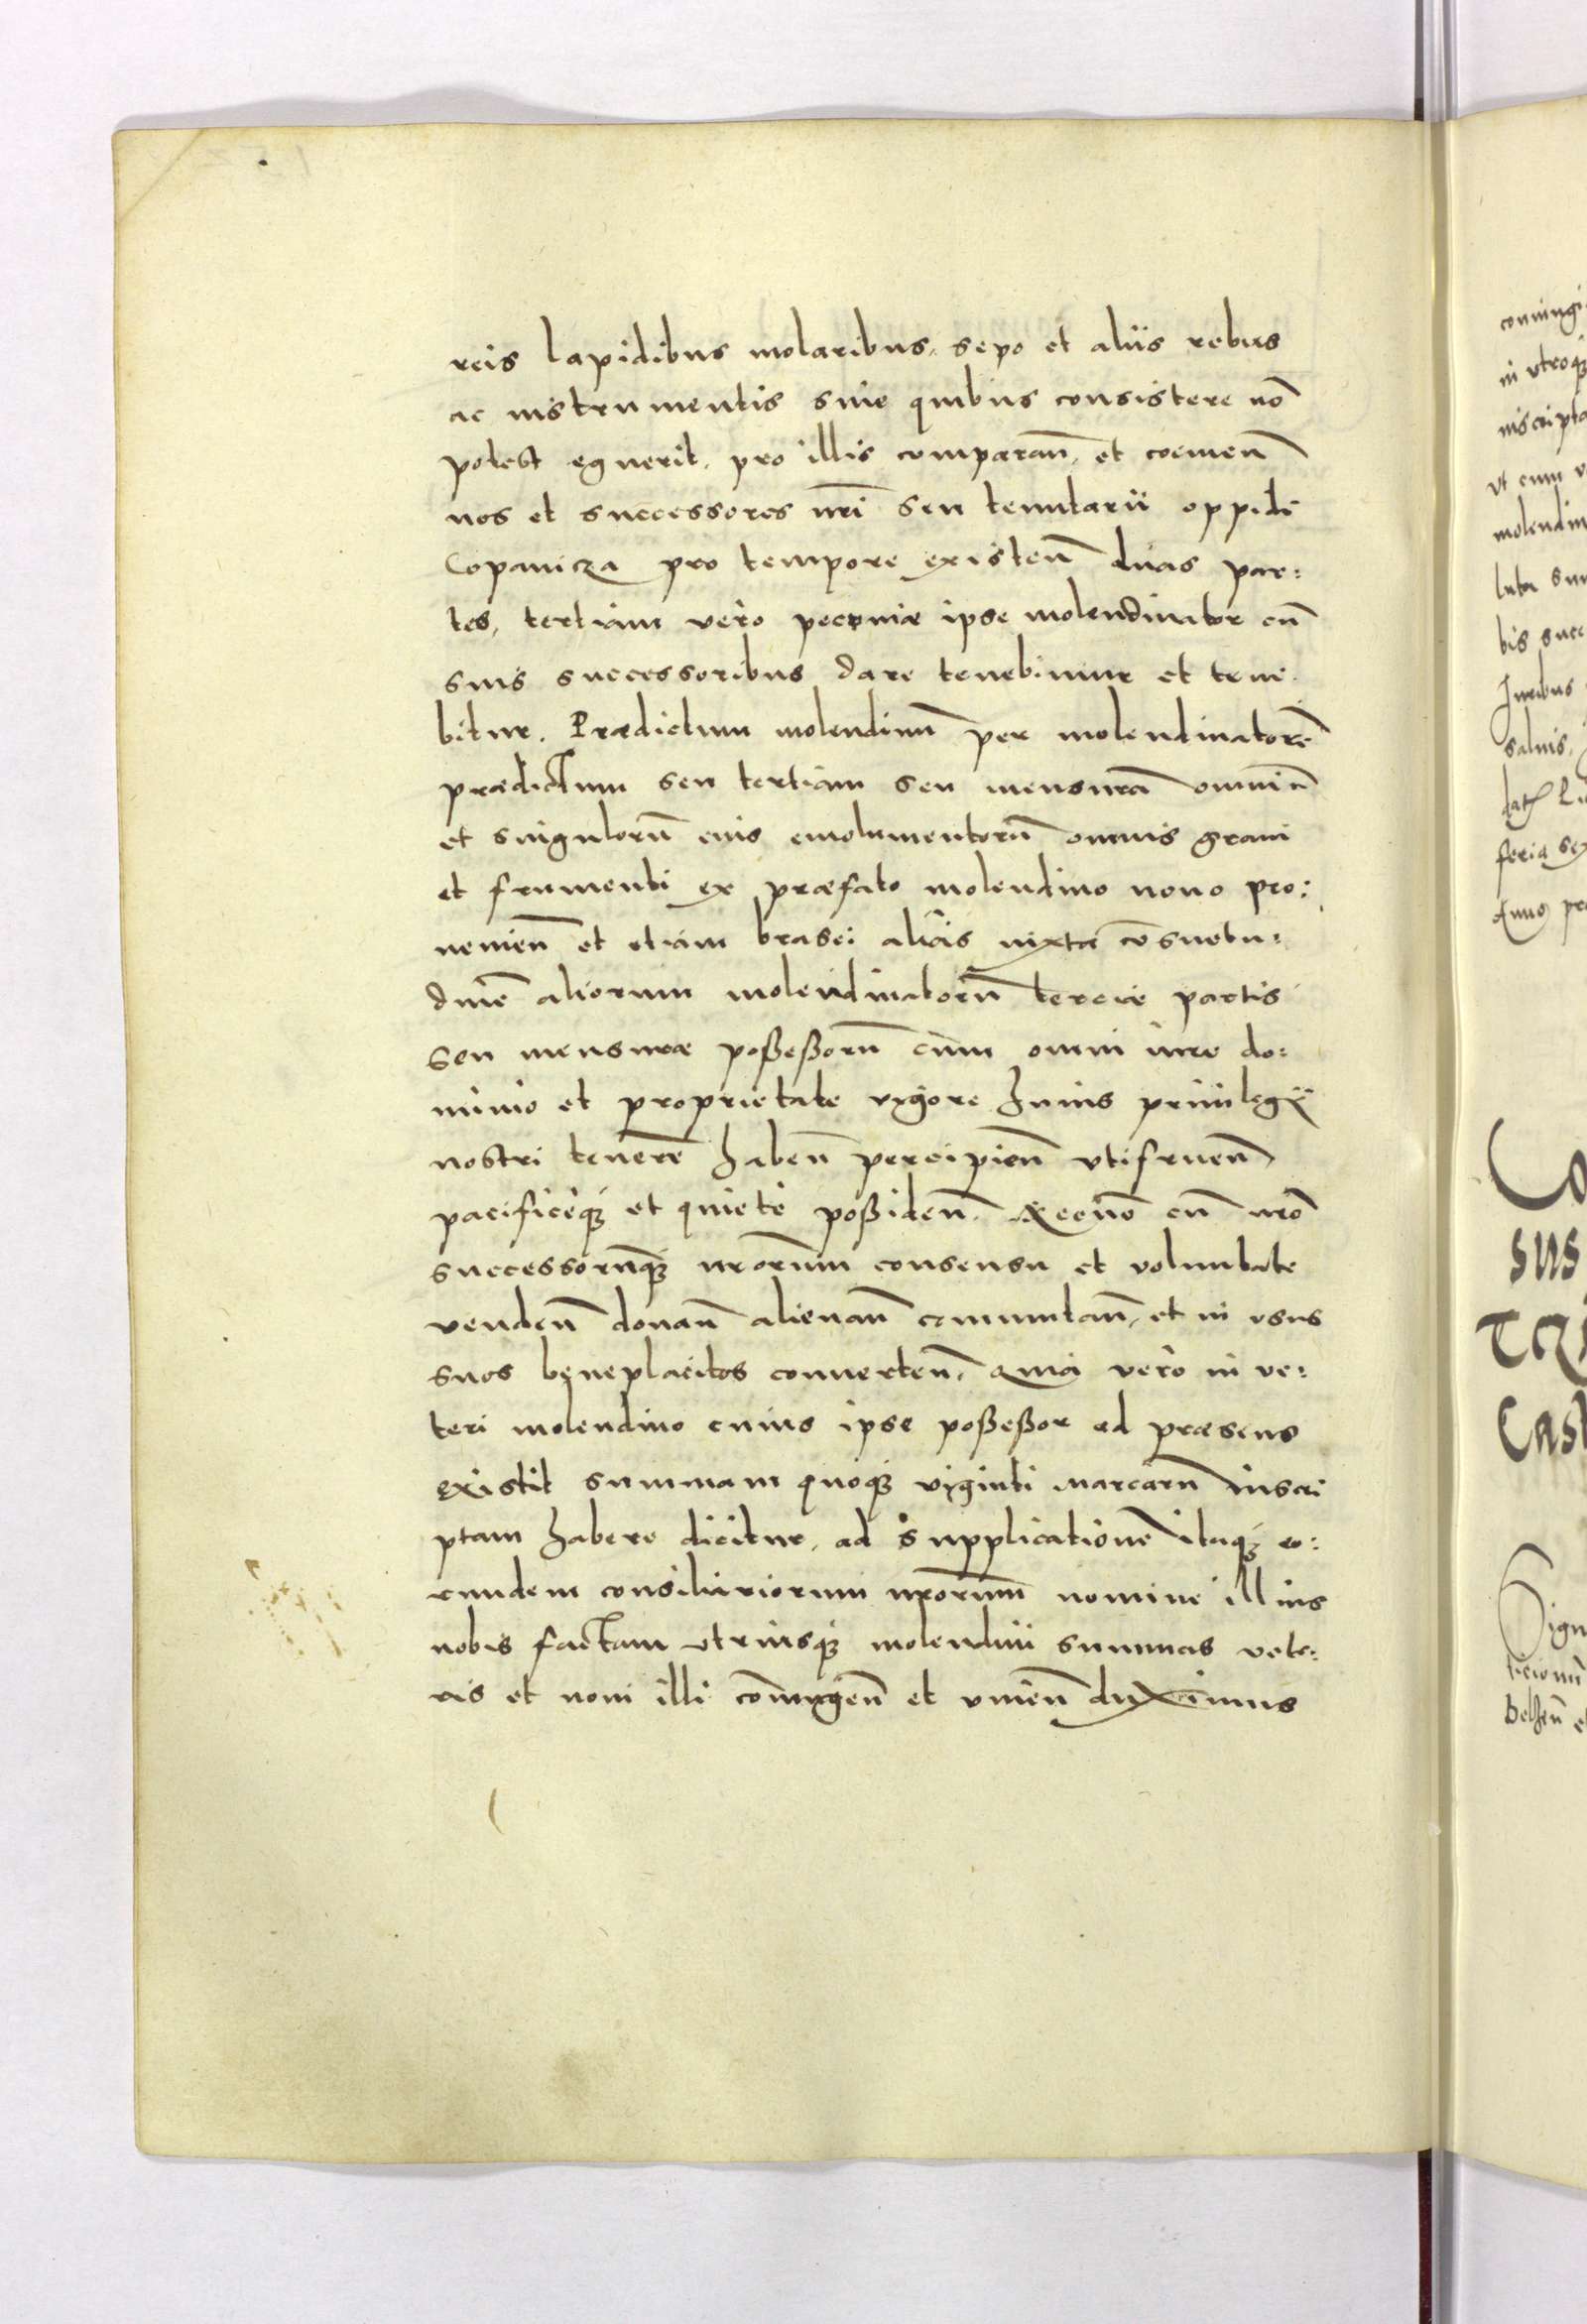 reis lapidibus molaribus, sepo et aliis rebus
ac instrumentis sine quibus consistere nō
potest eguerit, pro illis comparan̄, et coemen̄
nos et successores nr̄i seu tenutarii oppidi
Copanicza pro tempore existen̄ duas par:
tes, tertiam vero pecuniæ ipse molendinator cū
suis successoribus dare tenebimur et tene
bitur. Prædictum molendinū per molendinatorē
prædictum seu tertiam seu mensurā omniū
et singulorū eius emolumentorū omnis grani
et frumenti ex præfato molendino nouo pro:
uenien̄ et etiam brasei alias iuxta cōsuetu:
dinē aliorum molendinatorū terciæ partis
seu mensuræ poßeßorū cum omni iure do:
minio et proprietate vigore huius priuilegii
nostri tenere haben̄ percipien̄ vtifruen̄
pacificeq́ꝫ et quiete poßiden̄. Ac cū nrō
successorūq́ꝫ nrōrum consensu et voluntate
venden̄ donan̄ alienan̄ cōmutan̄, et in vsus
suos beneplacitos conuerten̄, Quia vero in ve:
teri molendino cuius ipse poßeßor ad præsens
existit summam quoq́ꝫ viginti marcarū inscri
ptam habere dicitur, ad supplicationē itaq́ꝫ eo:
rundem consiliariorum nrōrum nomine illius
nobis factam vtriusq́ꝫ molendini summas vete:
ris et noui illi cōiungen̄ et vnien̄ duximus
coniungi
in vtroqꝫ
inscripta
vt cum
molendin
bis succ
Iuribus
saluis,
feria sex
sus
Cast
Sign